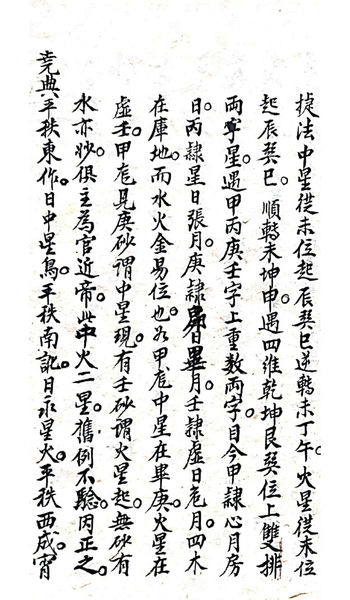 捷法中星從未位起辰巽巳逆轉未丁午。火星從未位
起辰巽巳。順轉未坤申。遇四維乾坤艮巽位上雙排
兩字星。遇甲丙庚壬字上重数兩字。目今甲隸心月房
日。丙隸星日張月。庚隸昴日畢月。壬隸虛日危月。四木
在庫地。而水火金易位也。如甲龙中星在畢庚。火星在
虛壬。甲龙見庚砂謂中星現。有壬砂謂火星起。無砂有
水亦妙。俱主為官近帝。此中火二星舊例不驗。因正之。
堯典平秩東作。日中星鳥。平秩南訛。日永星火。平秩西成。宵